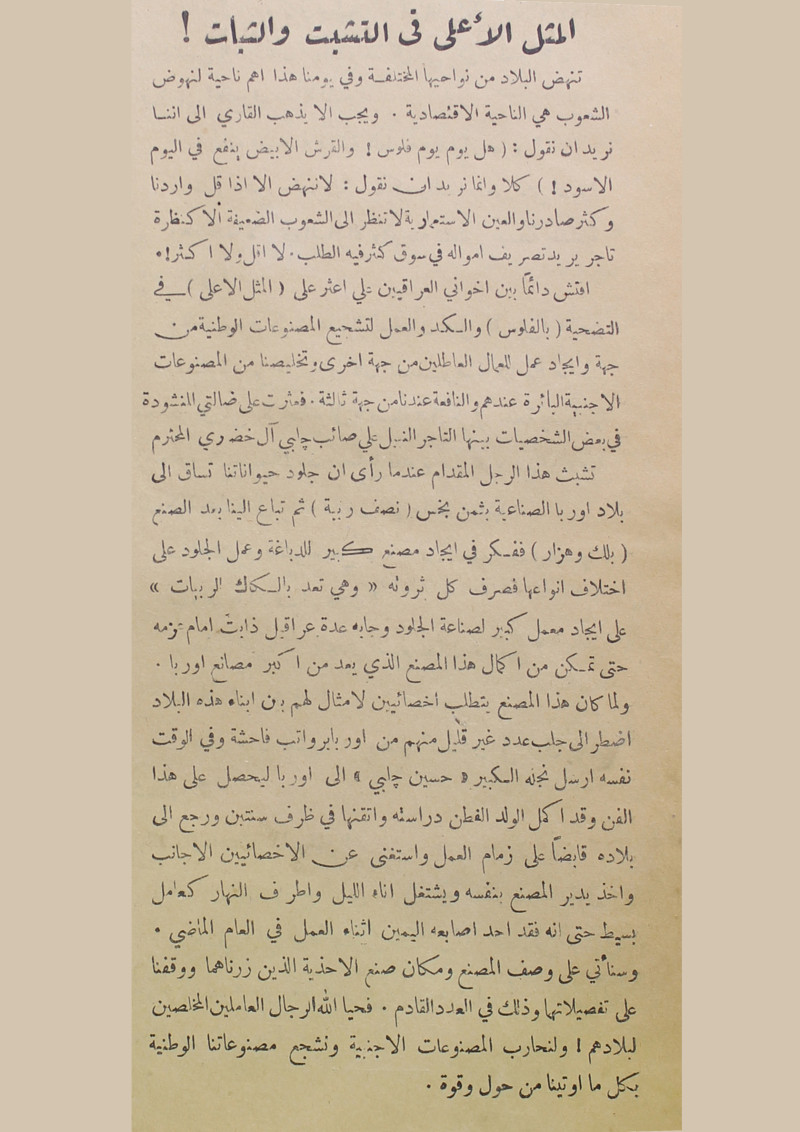 المثل الأعلى في التشبث والثبات !
تنهض البلاد من نواحيها المختلفة وفي يومنا هذا اهم ناحية لنهوض
الشعوب هي الناحية الاقتصادية . ويجب الا يذهب القاري الى اننا
نريد ان نقول : ( هل يوم يوم فلوس ! والقرش الابيض ينفع في اليوم
الاسود ! ) كلا وانما نريد ان نقول : لاننهض الا اذا قل واردنا
وكثر صادرنا والعين الاستعمارية لا تنظر الى الشعوب الضعيفة الا كنظرة
تاجر يريد تصريف امواله في سوق كثر فيه الطلب . لا اقل ولا اكثر ! .
افتش دائماً بين اخواني العراقيين علي اعثر على ( المثل الاعلى ) في
التضحية ( بالفلوس ) والكد والعمل لتشجيع المصنوعات الوطنية من
جهة وايجاد عمل للعمال العاطلين من جهة اخرى وتخليصنا من المصنوعات
الاجنبية البائرة عندهم والنافعة عندنا من جهة ثالثة . فعثرت على ضالتي المنشودة
في بعض الشخصيات بينها التاجر النبيل علي صائب چلبي آل خضري المحترم
تشبث هذا الرجل المقدام عندما رأى ان جلود حيواناتنا تساق الى
بلاد اوربا الصناعية بثمن بخس ( نصف ربية ) ثم تباع الينا بعد الصنع
( بلك وهزار ) ففكر في ايجاد مصنع كبير للدباغة وعمل الجلود على
اختلاف انواعها فصرف كل ثروته « وهي تعد بالكاك الربيات »
على ايجاد معمل كبير لصناعة الجلود وجابه عدة عراقيل ذابت امام عزمه
حتى تمكن من اكمال هذا المصنع الذي يعد من اكبر مصانع اوربا .
ولما كان هذا المصنع يتطلب اخصائيين لامثال لهم بين ابناء هذه البلاد
اضطر الى جلب عدد غير قليل منهم من اوربا برواتب فاحشة وفي الوقت
نفسه ارسل نجله الكبير « حسين چلبي » الى اوربا ليحصل على هذا
الفن وقد اكمل الولد الفطن دراسته واتقنها في ظرف سنتين ورجع الى
بلاده قابضاً على زمام العمل واستغنى عن الاخصائيين الاجانب
واخذ يدير المصنع بنفسه ويشتغل اناء الليل واطراف النهار كعامل
بسيط حتى انه فقد احد اصابعه اليمين اثناء العمل في العام الماضي .
وسنأتي على وصف المصنع ومكان صنع الاحذية الذين زرناهما ووقفنا
على تفصيلاتها وذلك في العدد القادم . فحيا الله الرجال العاملين المخلصين
لبلادهم ! ولنحارب المصنوعات الاجنبية ونشجع مصنوعاتنا الوطنية
بكل ما اوتينا من حول وقوة .